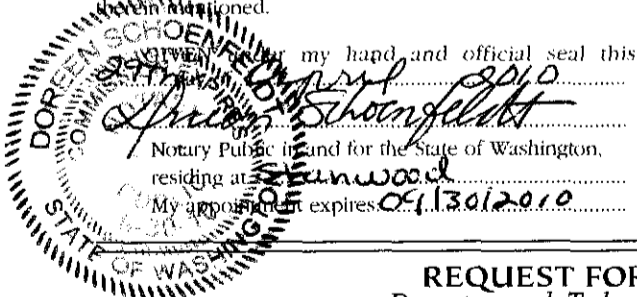 therein mentioned.
GIVEN under my hand and official seal this
29th April 2010
Doreen Schoenfeldt
Notary Public in and for the State of Washington,
residing at Stanwood
My appointment expires 04/30/2010
DOREEN SCHOENFELDT
STATE OF WASHINGTON
COMMISSION EXPIRES
REQUEST FOR